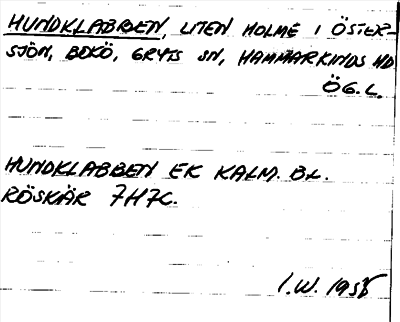 HUNDKLABBEN, LITEN HOLME I ÖSTER-
SJÖN, BOKÖ, GRYTS SN, HAMMARKINDS HD
ÖG. L.
HUNDKLABBEN EK KALM. BL.
RÖSKÄR 7H7C.
I.W. 19